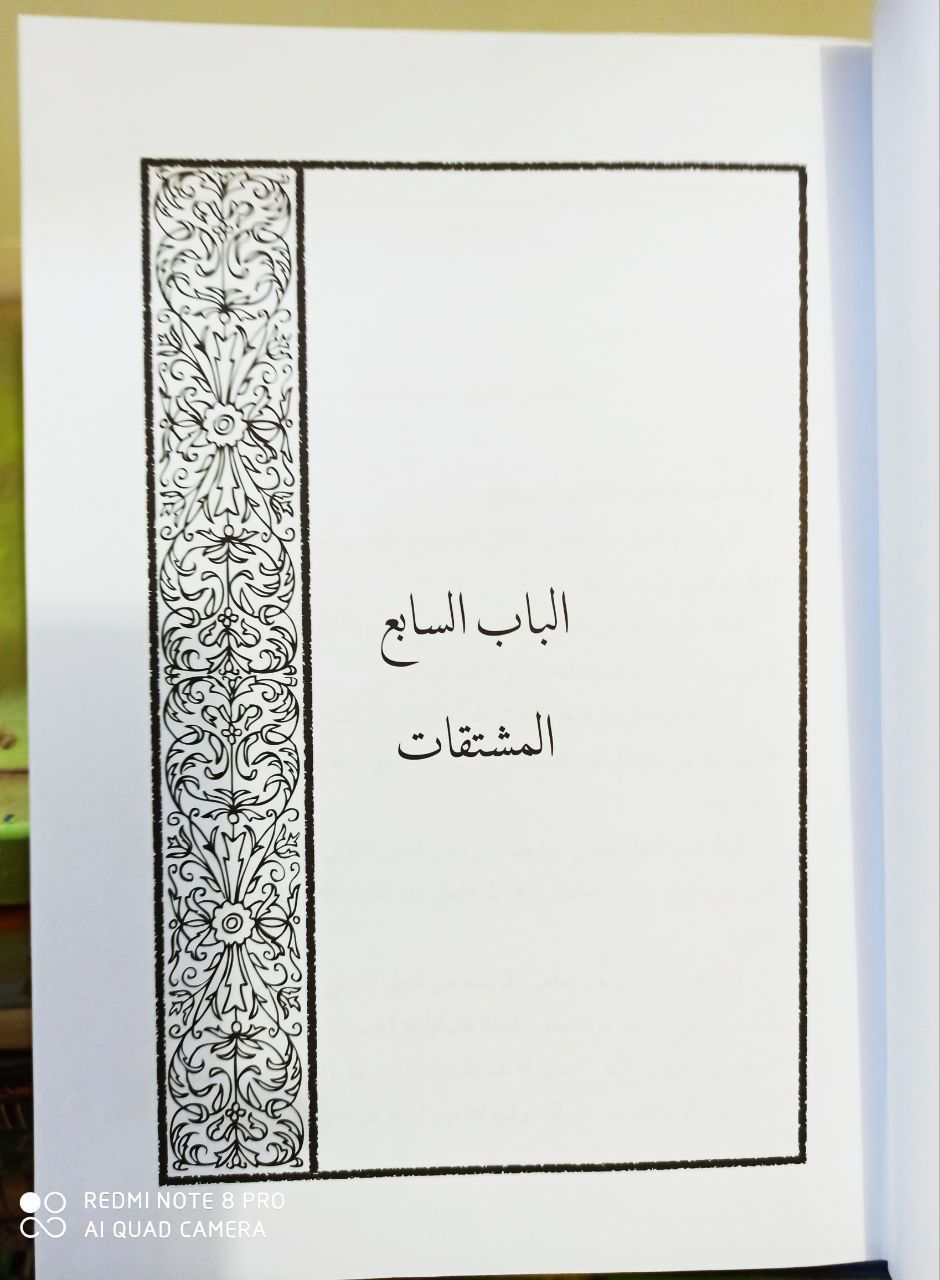 الباب السابع
المشتقات
REDMI NOTE 8 PRO
AI QUAD CAMERA